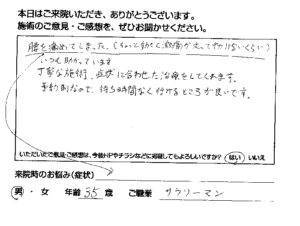 本日はご来院いただき、ありがとうございます。
施術のご意見・ご感想を、ぜひお聞かせください。
腰を痛めてしまった。(ちょっと動くと激痛が走って動けないくらい)
いつも助かっています
丁寧な施術、症状に合わせた治療をしてくれます。
予約制なので、待ち時間なく行けるところが良いです。
いただいたご意見・ご感想は、今後HPやチラシなどに掲載してもよろしいですか? はい いいえ
来院時のお悩み(症状)
男・女 年齢 35 歳 ご職業 サラリーマン